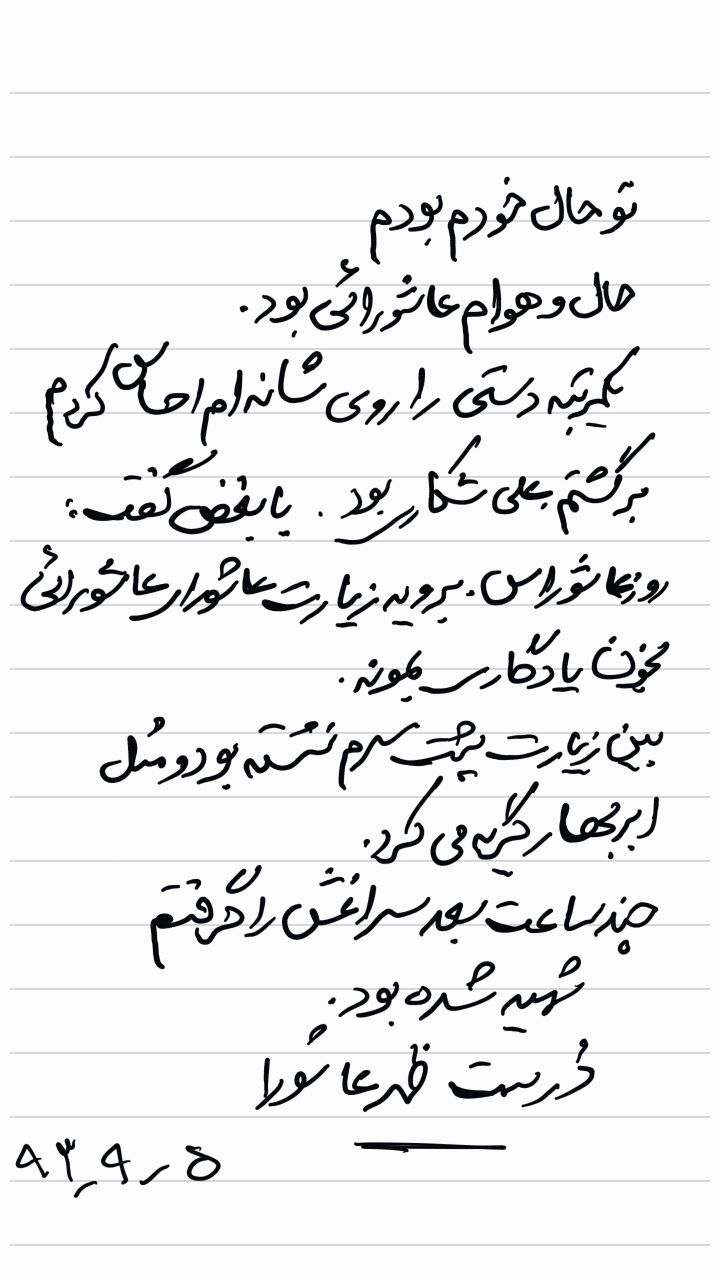 تو حال خودم بودم
حال و هوام عاشورائی بود.
یکمرتبه دستی را روی شانه ام احساس کردم
برگشتم علی شکاری بود. با بغض گفت:
روز عاشوراس. برو یه زیارت عاشورای عاشورائی
بخون یادگاری بمونه.
بین زیارت پشت سرم نشسته بود و مثل
ابر بهار گریه می کرد.
چند ساعت بعد سراغش را گرفتم
شهید شده بود.
دُرست ظهر عاشورا